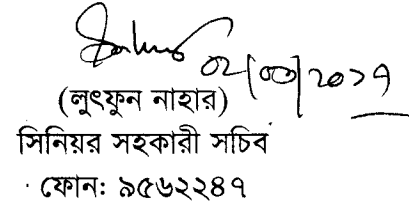 ০২/০৩/২০১৭
(লুৎফুন নাহার)
সিনিয়র সহকারী সচিব
ফোন: ৯৫৬২২৪৭